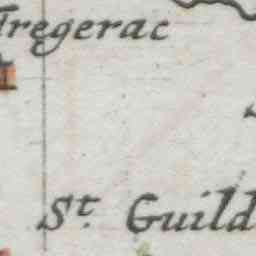 Tregerac
St. Guild